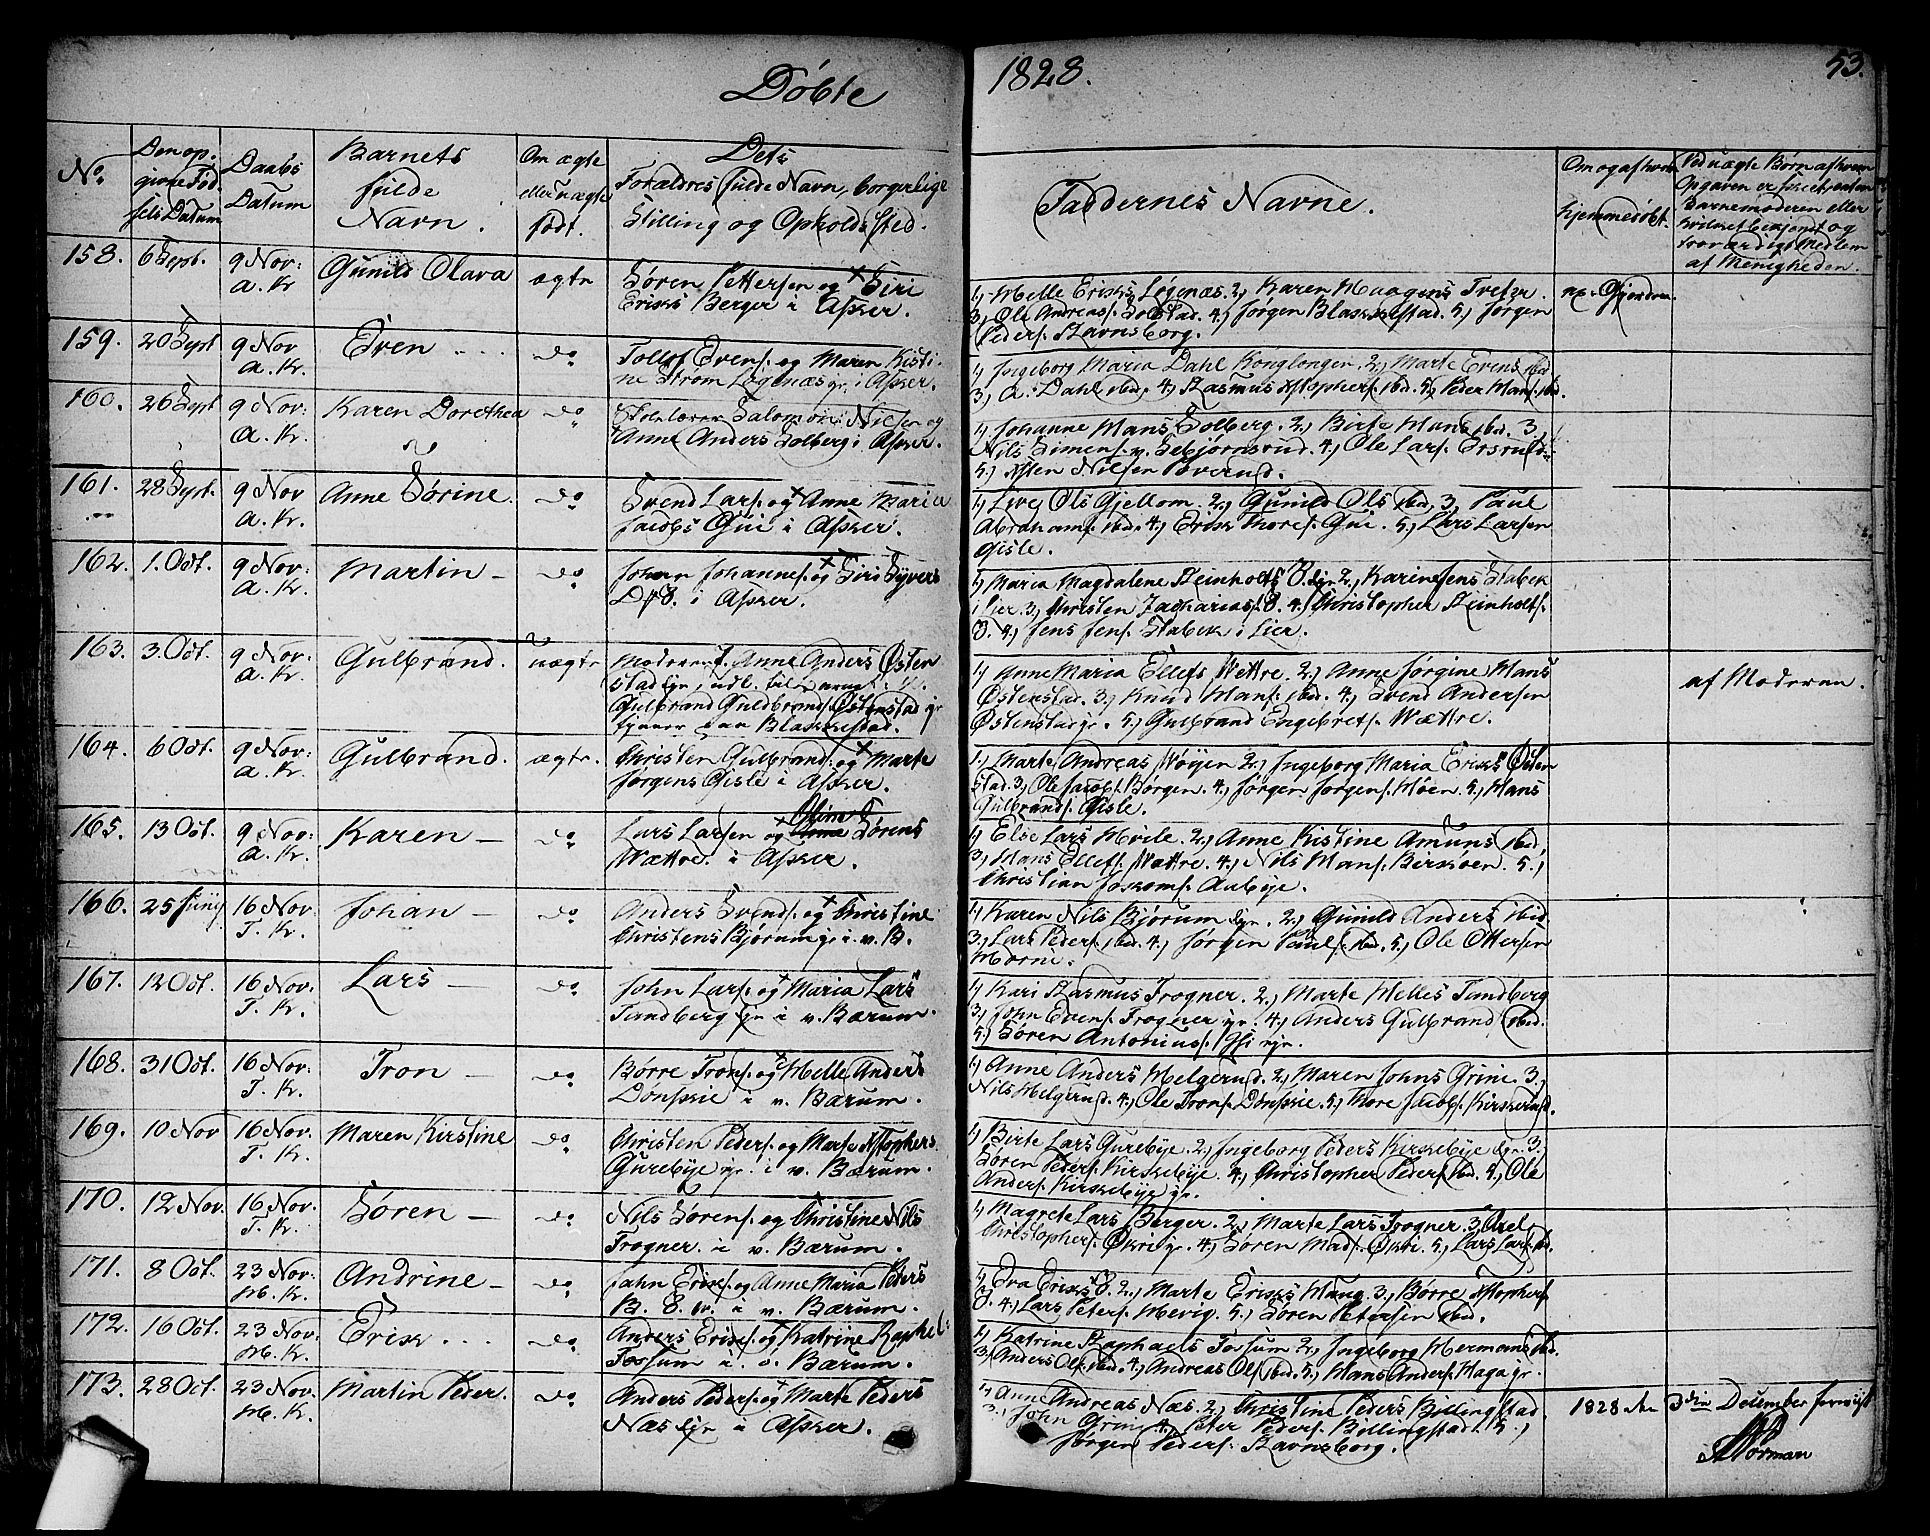 Döbte
1828.
53.
No.
Den op-
givne Föd-
sels Datum
Daabs
Datum
Barnets
fulde
Navn.
Om ægte
eller uægte
födt.
Dets
Forældres fulde Navn, borgerlige
Stilling og Opholds Sted.
Faddernes Navne.
Om og af hvem
hjemmedöbt.
Ved uægte Börn af hvem
Opgaven er
Barnemoderen eller
troværdigt Medlem
af Menigheden.
158. 6 Sept. 9 Nov: Gunild Olava ægte Sören Pettersen og Siri
A. Kr Eriks Berger i Asker.
1, Helle Eriks Legenæs. 2, Karen Haagens
3, Ole Andreas. 4, Jörgen Blakkestad. 5, Jörgen
Peders. Ravnsborg.
159. 20 Sept 9 Nov Even do Tollef Evens. og Maren Kisti-
A. Kr. ne Ström Legenæs gr. i Asker.
1, Ingeborg Maria Dahl Konglongen. 2, Marte Evens ibd
3, A. Dahl ibd. 4, Rasmus Xstophers. ibd. 5, Peder Hans. ibd.
160. 26 Sept 9 Nov: Karen Dorothea do Skolelærer Salomon Nielsen og
A. Kr. Anne Anders Solberg i Asker.
1, Johanne Hans Solberg. 2, Birte Hans ibd. 3,
Nils Simens. 4, Ole Lars.
5,
161. 28 Sept. 9 Nov Anne Sörine. do Svend Lars. og Anne Maria
A. Kr. Jacobs Gui i Asker.
1, Live Ols Gjellom. 2, Gunild Ols ibd. 3, Paul
Abrahams. ibd. 4, Erik Thores. Gui. 5, Lars Larsen
Gisle.
162. 1. Oct. 9 Nov: Martin do Johan Johannes. og Siri Syvers
A. Kr. i Asker.
1, Maria Magdalene Reinholts 2, Karine Jens Stabek
i Lier. 3, Christen Zacharias. 4, Christopher Reinholts.
4, Jens Jens. Stabek i Lier.
163. 3. Oct. 9 Nov: Gulbrand. uægte Moderen Anne Anders Östen
A. Kr. stad
Gulbrand Guldbrands. Östenstad
tjener paa Blakkestad.
1, Anne Maria Ellefs Wættre. 2, Anne Jörgine Hans
Östenstad. 3, Knud Hans. ibd. 4, Svend Andersen
Östenstad gr. 5, Gulbrand Engebrets. Wættre.
af Moderen.
164. 6 Oct. 9 Nov: Gulbrand. ægte. Christen Gulbrands. og Marte
A. Kr. Jörgens Gisle i Asker.
1, Marte Andreas Nöyen 2, Ingeborg Maria Eriks Östen
stad. 3, Ole Jacobs. Börgen. 4, Jörgen Jörgens. Möen 5, Hans
Gulbrands. Gisle.
165. 13 Oct. 9 Nov: Karen do Lars Larsen og Sörens
A. Kr. Wættre. i Asker.
1, Else Lars Hvile. 2, Anne Kistine Amunds ibd.
3, Hans Ellefs. Wættre. 4, Nils Hans. 5,
Christian
166. 25 Junij 16 Nov. Johan do Anders Svends. og Christine
T. Kr. Christens Bjorum gr. i v. B.
1, Karen Nils Bjorum 2, Gunild Anders ibid.
3, Lars Peders. ibd. 4, Jörgen Pauls. ibd. 5, Ole Ottersen
Horni.
167. 12 Oct. 16 Nov. Lars do John Lars. og Maria Lars
T. Kr. Tandberg gr i v. Bærum.
1, Kari Rasmus Frogner. 2, Marte Helles Tandberg
3, John Evens. Frogner gr. 4, Anders Gulbrands. ibid.
5, Sören Antonius.
168. 31 Oct. 16 Nov. Tron do Börre Trons. og Helle Anders
T. Kr. Dönskie i v. Bærum.
1, Anne Anders Helgerud. 2, Maren Johns Grini. 3,
Nils Helgerud. 4, Ole Trons. Dönskie. 5, Thore Jacobs. Kirkerud.
169. 10 Nov 16 Nov. Maren Kirstine do Christen Peders. og Marte Xstophers
T. Kr. Gurebye gr. i v. Bærum.
1, Birte Lars Gurebye. 2, Ingeborg Peders Kirkebye 3,
Sören Peders. Kirkebye. 4, Christopher Peders. ibd. 5, Ole
Anders. Kirkebye gr.
170. 12 Nov. 16 Nov. Sören do Nils Sörens. og Christine Nils
T. Kr. Frogner i v. Bærum.
1, Magrete Lars Berger. 2, Marte Lars Frogner. 3, Axel
Christophers. Økri gr. 4, Sören Mads. Økri. 5, Lars Lars. ibd.
171. 8 Oct. 23 Nov: Andrine do John Eriks. og Anne Maria Peders
M. Kr. i v. Bærum.
1, Eriks 2, Marte Eriks Haug. 3, Börre Xstophers.
4, Lars Peters. Hevig. 5, Sören Petersen ibd.
172. 16 Oct. 23 Nov. Erik do Anders Eriks. og Katrine Raphel:
M. Kr. Fossum i v. Bærum.
1, Katrine Raphaels Fossum 2, Ingeborg Hermans ibd.
3, Anders Ols. ibd. 4, Andreas Ols. ibd. 5, Hans Anders. Haga gr.
173. 28 Oct. 23 Nov. Martin Peder. do Anders Peders. og Marte Peders
M. Kr. Næs i Asker.
1, Anne Andreas Næs. 2, Christine Peders Billingstad.
3, John Grini 4, Peter Peders. Billingstad. 5,
Jörgen Peders. Ravnsborg.
1828 den 3die December